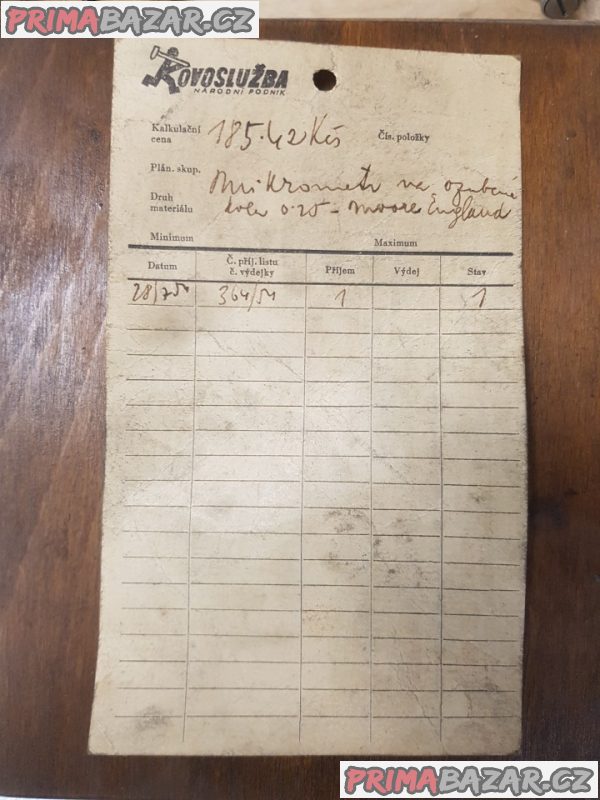 PRIMABAZAR.CZ
KOVOSLUŽBA
NÁRODNÍ PODNIK
Kalkulační cena 185.42 Kčs Čís. položky
Plán. skup.
Mikrometr na ozubené
Druh materiálu kola 0-25 - Moore England
Minimum Maximum
Datum Č. příj. listu č. výdejky Příjem Výdej Stav
28/7 54 364/54 1 1
PRIMABAZAR.CZ